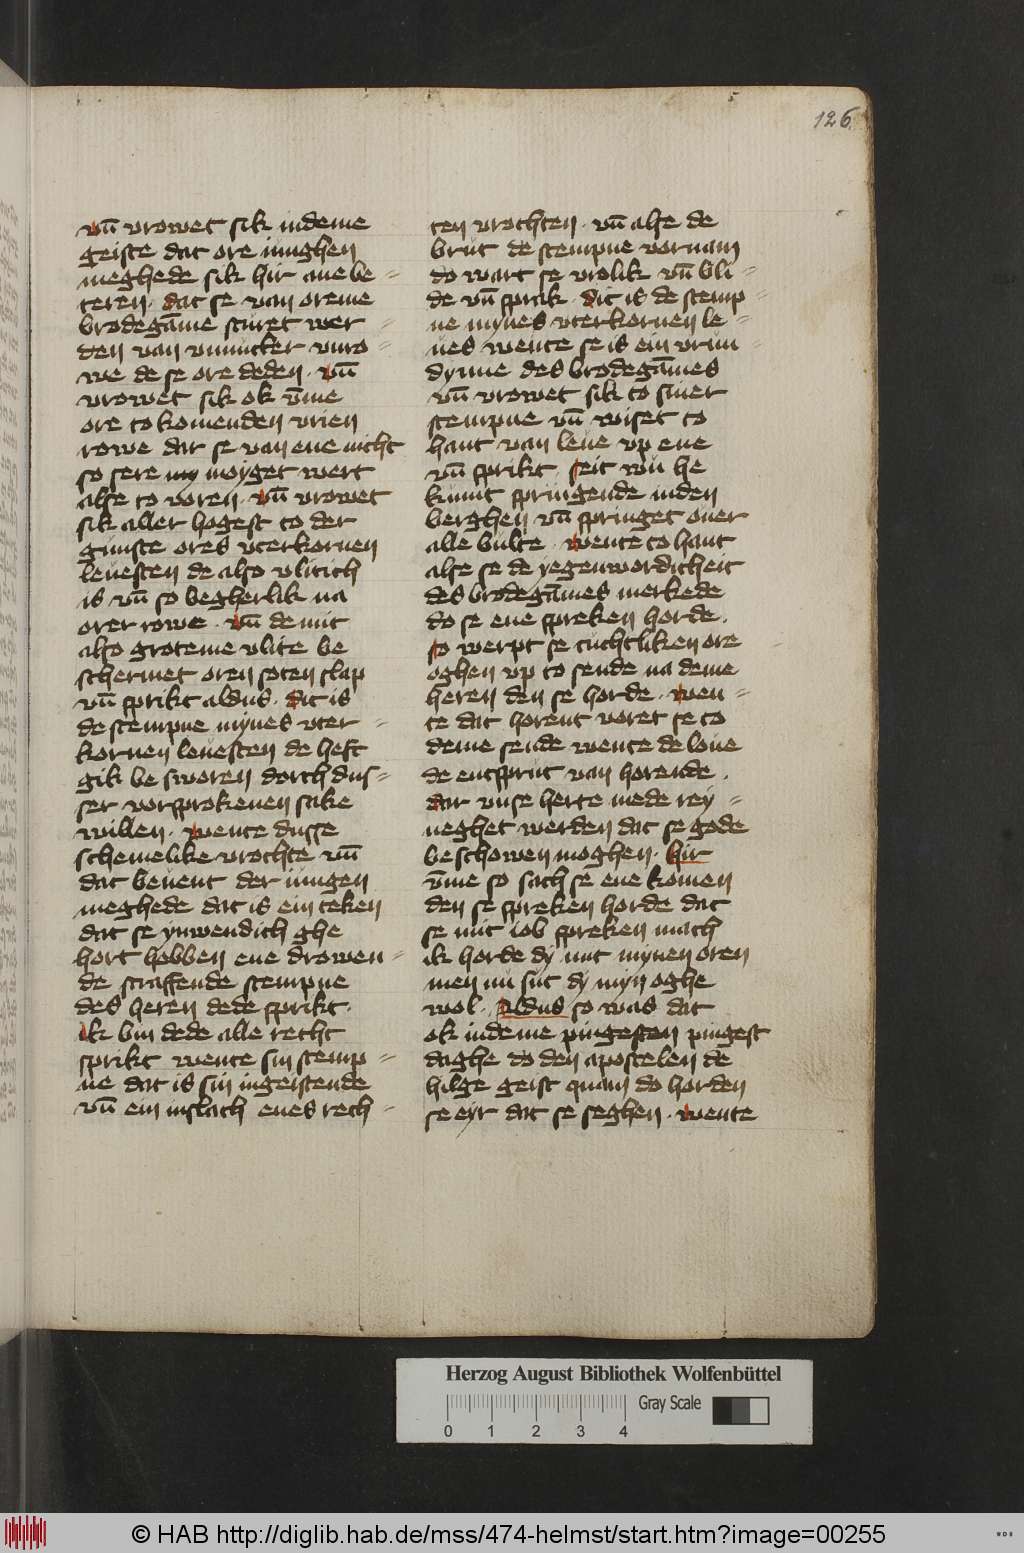 126
vn̄ vrowet sik indeme
geiste dat ore iunghen
meghede sik hir ane be=
teren · dat se van oreme
brodegāme sturet wer=
den van vnnutter vnro=
we de se ore deden · vn̄
vrowet sik ok v̄me
ore to komenden vrien
rowe dat se van ene nicht
so sere moyget wert
alse to voren · vn̄ vrowet
sik aller hogest to der
gunste ores vterkornen
leuesten de also vlitich
is vn̄ so begherlik na
orer rowe · vn̄ de mit
also groteme vlite be
schermet oren soten slap
vn̄ sprikt aldus · dit is
de stempne mynes vter=
kornen leuesten de heft
gik be sworen dorch dus=
ser vorsprokenen sake
willen · wente dusse
schemelike vrochte vn̄
dat beuent der iungen
meghede dat is ein teken
dat se ynwendich ghe
hort hebben ene drowen=
de straffende stempne
des heren dede sprikt ·
ik bin dede alle recht
sprikt wente sin stemp=
ne dat is sin ingeistende
vn̄ ein inslach enes rech=
ten vrochten · vn̄ alse de
brut de stempne vornam
do wart se vrolik vn̄ bli=
de vn̄ sprak · dit is de stemp=
ne mynes vterkornen le=
ues wente se is ein vrun
dynne des brodegāmes
vn̄ vrowet sik to siner
stempne vn̄ wiset to
hant van leue vp ene
vn̄ sprikt · seit wū he
kumt springende inden
berghen vn̄ springet ouer
alle bulte · wente to hant
alse se de yegenwordicheit
des brodegāmes merkede
do se ene spreken horde ·
so werpt se tuchtliken ore
oghen vp to sende na deme
heren den se horde · wen=
te dat horent voret se to
deme sende wente de loue
de entsprut van horende ·
dar vnse herte mede rey=
neghet werden dat se gode
beschowen moghen · hir
v̄me so sach se ene komen
den se spreken horde dat
se mit iob spreken mach
ik horde dy mit mynen oren
men nu sut dy myn oghe
wol · Aldus so was dat
ok indeme pingesten pingest
daghe do den apostelen de
hilge geist quam do horden
se eyr dat se seghen · wente
Herzog August Bibliothek Wolfenbüttel
0 1 2 3 4
Gray Scale
© HAB http://diglib.hab.de/mss/474-helmst/start.htm?image=00255
WDB